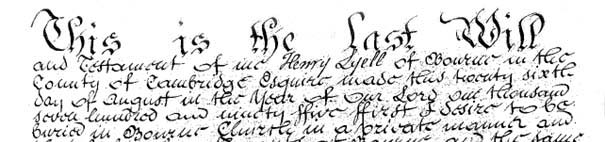 This is the Last Will
and Testament of me Henry Lyell of Bourne in the
County of Cambridge Esquire made this twenty sixth
day of August in the Year of our Lord one thousand
seven hundred and ninety five First I desire to be
buried in Bourne Church in a private manner and
of Bourne and the same